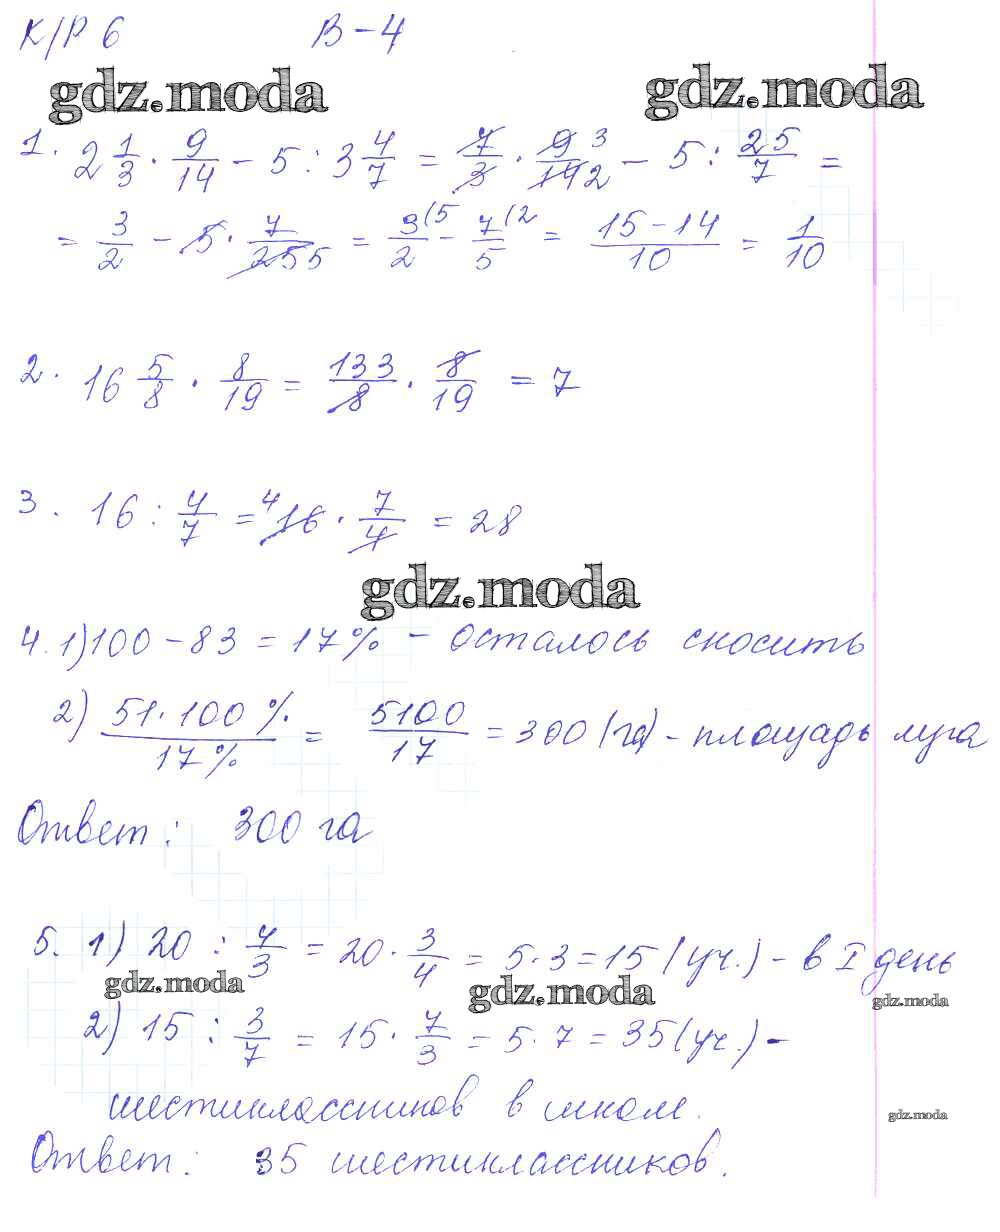 К/Р 6 В-4
gdz.moda gdz.moda
1. 2 1/3 · 9/14 - 5 : 3 4/7 = 7/3 · 9 3/14 2 - 5 : 25/7 =
= 3/2 - 5 · 7/25 5 = 3(5/2 - 7(2/5 = 15-14/10 = 1/10
2. 16 5/8 · 8/19 = 133/8 · 8/19 = 7
3. 16 : 4/7 = 4 16 · 7/4 = 28
gdz.moda
4. 1) 100 - 83 = 17% - осталось скосить
2) 51·100%/17% = 5100/17 = 300 (га) - площадь луга
Ответ: 300 га
5. 1) 20 : 4/3 = 20 · 3/4 = 5·3 = 15 (уч.) - в I день
gdz.moda gdz.moda gdz.moda
2) 15 : 3/7 = 15 · 7/3 = 5·7 = 35 (уч.) -
шестиклассников в школе.
gdz.moda
Ответ: 35 шестиклассников.